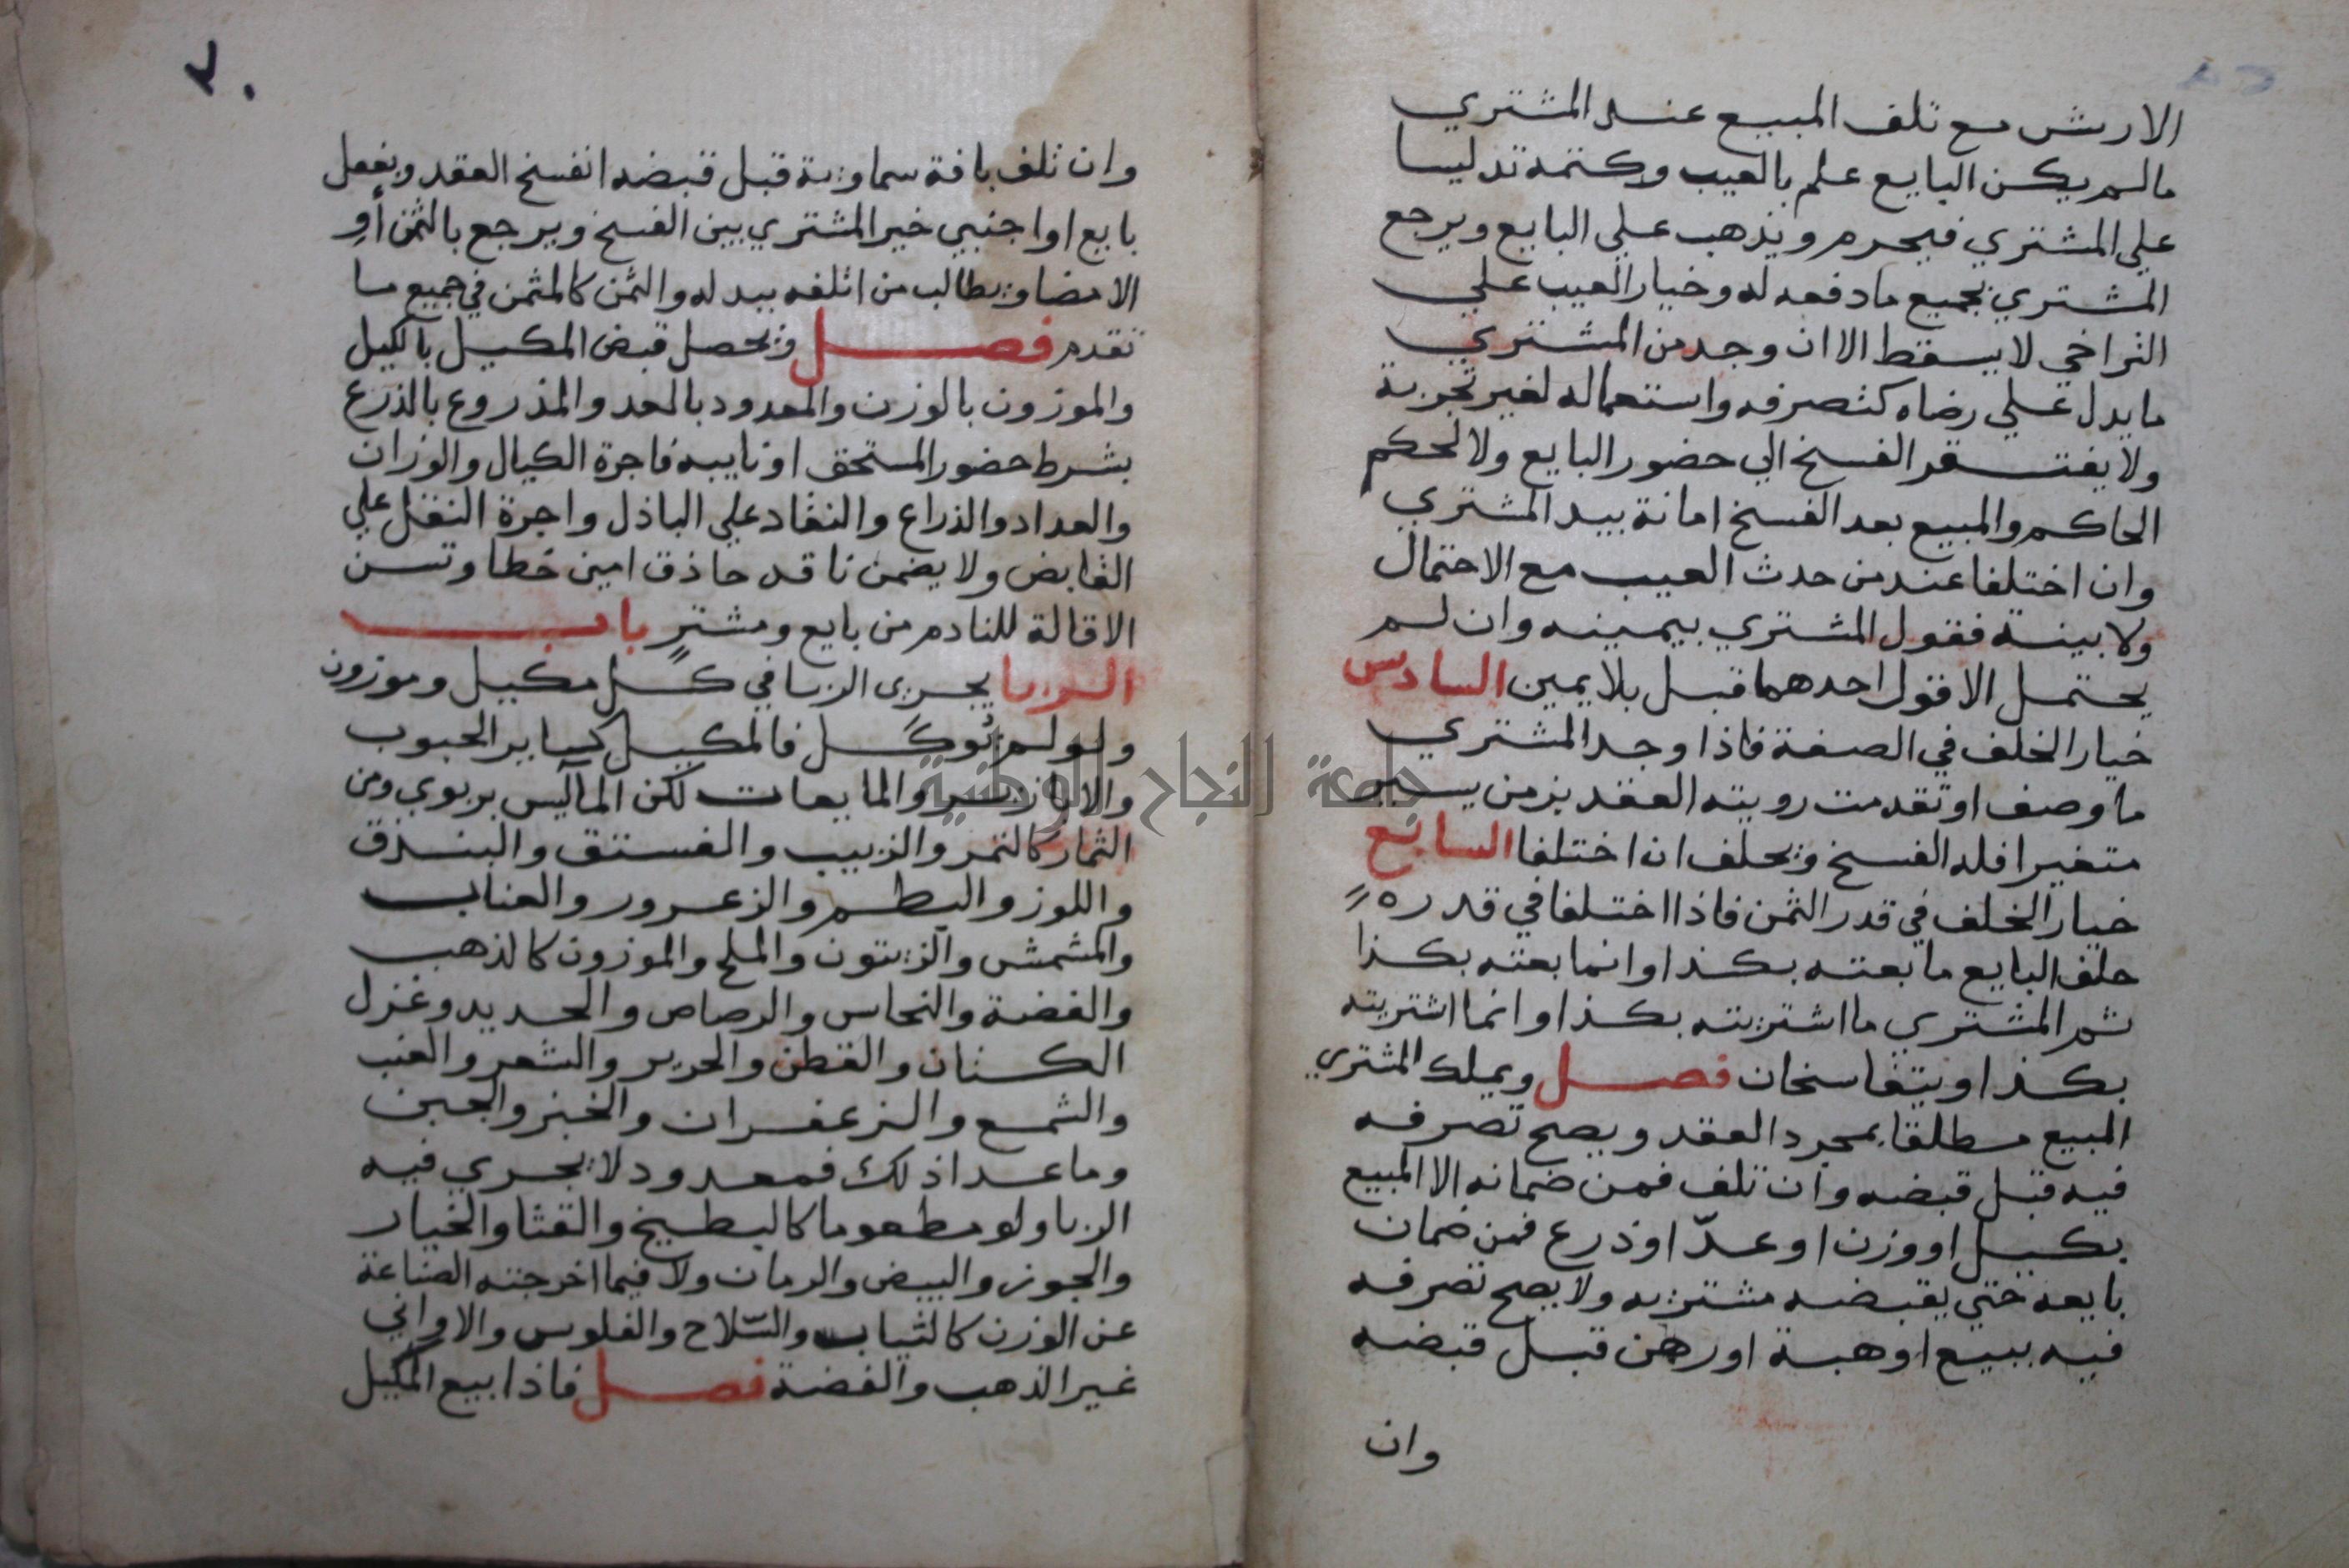 الارش مع تلف المبيع عند المشتري
مالم يكن البايع علم بالعيب وكتمه تدليسا
علي المشتري فيحرم ويذهب علي البايع ويرجع
المشتري بجميع ما دفعه له وخيار العيب علي
التراخي لا يسقط الا ان وجد من المشتري
ما يدل علي رضاه كتصرفه واستعماله لغير تجربة
ولا يفتقر الفسخ الي حضور البايع ولا لحكم
الحاكم والمبيع بعد الفسخ امانة بيد المشتري
وان اختلفا عند من حدث العيب مع الاحتمال
ولا بينة فقول المشتري بيمينه وان لم
يحتمل الا قول احدهما قبل بلا يمين السادس
خيار الخلف في الصفة فاذا وجد المشتري
ما وصف او تقدمت رويته العقد بزمن يسير
متغيرا فله الفسخ ويحلف ان اختلفا السابع
خيار الخلف في قدر الثمن فاذا اختلفا في قدره
حلف البايع ما بعته بكذا وانما بعته بكذا
ثم المشتري ما اشتريته بكذا وانما اشتريته
بكذا ويتفاسخان فصل ويملك المشتري
المبيع مطلقا بمجرد العقد ويصح تصرفه
فيه قبل قبضه وان تلف فمن ضمانه الا المبيع
بكيل او وزن او عدّ او ذرع فمن ضمان
بايعه حتي يقبضه مشتريه ولا يصح تصرفه
فيه ببيع او هبة او رهن قبل قبضه
وان
٢٠
وان تلف بافة سماوية قبل قبضه انفسخ العقد وبفعل
بايع او اجنبي خير المشتري بين الفسخ ويرجع بالثمن أو
الامضا ويطالب من اتلفه ببدله والثمن كالمثمن في جميع ما
تقدم فصل ويحصل قبض المكيل بالكيل
والموزون بالوزن والمعدود بالعد والمذروع بالذرع
بشرط حضور المستحق او نايبه فاجرة الكيال والوزان
والعداد والذراع والنقاد علي الباذل واجرة النقل علي
القابض ولا يضمن ناقد حاذق امين خطا وتسن
الاقالة للنادم من بايع ومشترٍ باب
الربا يجري الربا في كل مكيل وموزون
ولو لم يُوكل فالمكيل كساير الحبوب
والابازير والمايعات لكن المآليس بربوي ومن
الثمار كالتمر والزبيب والفستق والبندق
واللوز والبطم والزعرور والعناب
والمشمش والزيتون والملح والموزون كالذهب
والفضة والنحاس والرصاص والحديد وغزل
الكتان والقطن والحرير والشعر والعنب
والشمع والزعفران والخبز والجبن
وما عدا ذلك فمعدود لا يجري فيه
الربا ولو مطعوما كالبطيخ والقثا والخيار
والجوز والبيض والرمان ولا فيما اخرجته الصناعة
عن الوزن كالثياب والسّلاح والفلوس والاواني
غير الذهب والفضة فصل فاذا بيع المكيل
جامعة النجاح الوطنية